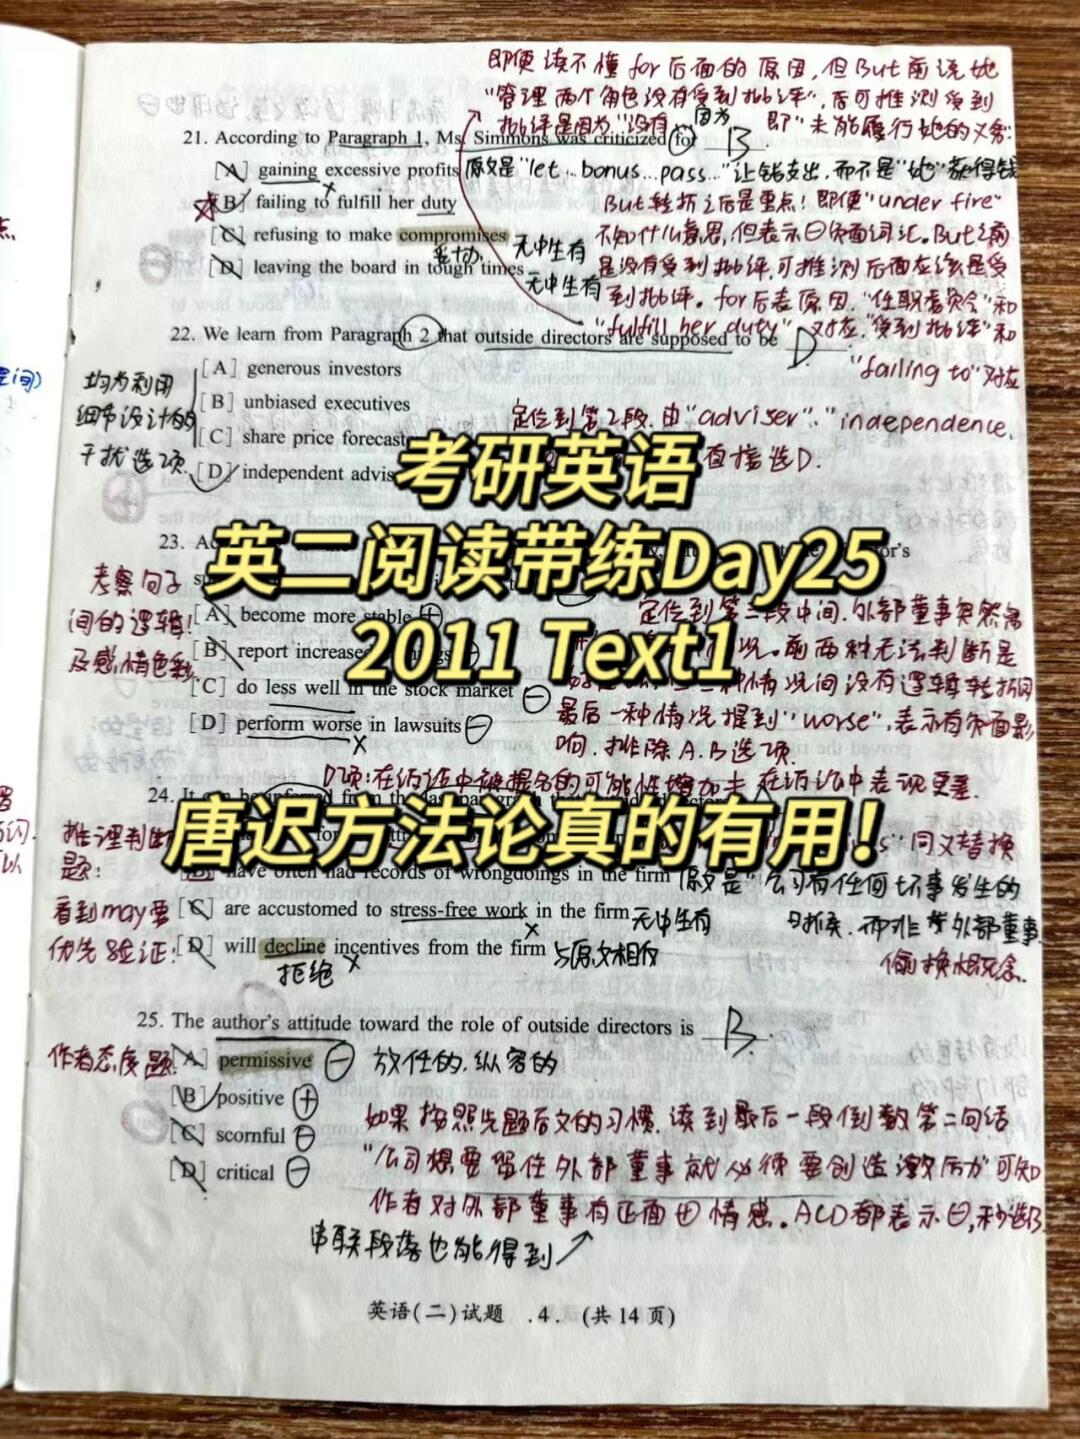 即便读不懂for后面的原因,但But前说她
"管理两个角色没有受到批评",后可推测受到
批评是因为"没有 因为 即"未能履行她的义务"
21. According to Paragraph 1, Ms. Simmons was criticized for B.
[A] gaining excessive profits 原文是"let..bonus...pass.."让钱支出,而不是"她"获得钱
[B] failing to fulfill her duty But转折之后是重点!即便"under fire"
[C] refusing to make compromises 妥协 无中生有 不知什么意思,但表示⊖负面词汇。But之前
[D] leaving the board in tough times 无中生有 是没有受到批评,可推测后面应该是受
到批评。for后表原因."任职委员会"和
"fulfill her duty"对应,"受到批评"和
22. We learn from Paragraph 2 that outside directors are supposed to be D.
"failing to"对应
均为利用
细节设计的
干扰选项
[A] generous investors
[B] unbiased executives
定位到第2段.由"adviser"."independence.
[C] share price forecast
直接选D.
[D] independent advis
考研英语
英二阅读带练Day25
2011 Text1
唐迟方法论真的有用!
23. Ac
考察句子
间的逻辑!
及感情色彩.
定位到第三段中间.外部董事突然离
[A] become more stable ⊕
况。前两种无法判断是
[B] report increased
种情况间没有逻辑转折词
[C] do less well in the stock market ⊖
最后一种情况提到"worse",表示有负面影
[D] perform worse in lawsuits ⊖
响.排除A.B选项.
D项:在诉讼中被提名的可能性增加≠在诉讼中表现更差.
24. It can be inferred from the last paragraph that outside directors
推理判断
题:
看到may要
优先验证!
同义替换
have often had records of wrongdoings in the firm 原文是"公司有任何坏事发生的
[C] are accustomed to stress-free work in the firm 无中生有 外部董事
[D] will decline incentives from the firm 与原文相反
拒绝
偷换概念.
25. The author's attitude toward the role of outside directors is B.
作者态度题
[A] permissive ⊖ 放任的.纵容的
[B] positive ⊕
如果按照先题后文的习惯.读到最后一段倒数第二句话
[C] scornful ⊖
"公司想要留住外部董事就必须要创造激励"可知
[D] critical ⊖
作者对外部董事有正面⊕情感。ACD都表示⊖,秒选B
串联段落也能得到
英语(二)试题 .4. (共14页)